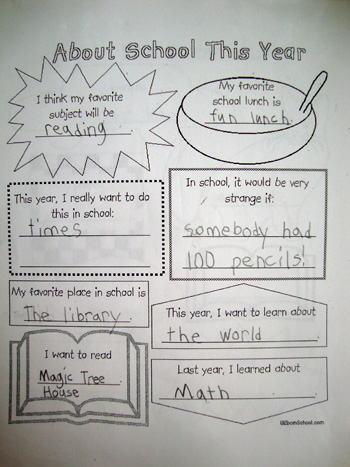 About School This Year
I think my favorite
subject will be
reading.
My favorite
school lunch is
fun lunch.
This year, I really want to do
this in school:
times
In school, it would be very
strange if:
somebody had
100 pencils!
My favorite place in school is
The library.
This year, I want to learn about
the world.
I want to read
Magic Tree
House
Last year, I learned about
Math.